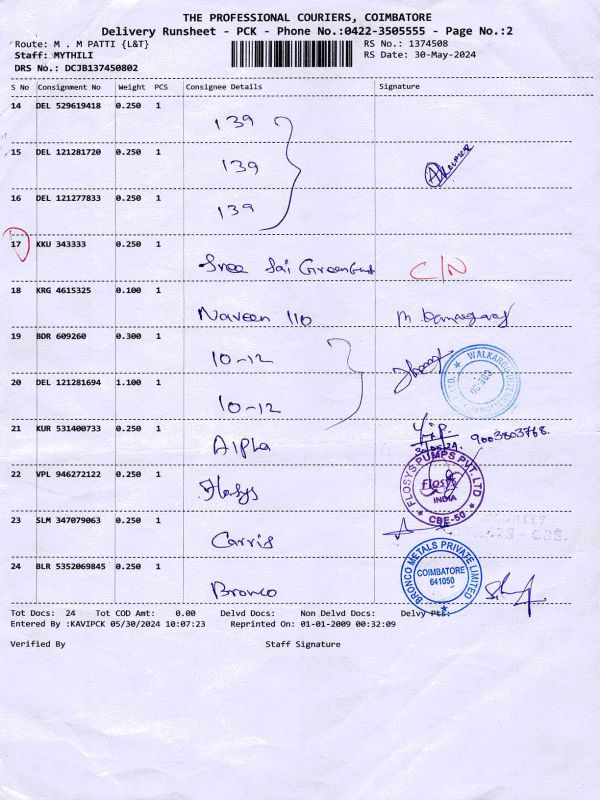 THE PROFESSIONAL COURIERS, COIMBATORE
Delivery Runsheet - PCK - Phone No.:0422-3505555 - Page No.:2
Route: M . M PATTI {L&T} RS No.: 1374508
Staff: MYTHILI RS Date: 30-May-2024
DRS No.: DCJB137450802
S No Consignment No Weight PCS Consignee Details Signature
14 DEL 529619418 0.250 1 139
15 DEL 121281720 0.250 1 139
16 DEL 121277833 0.250 1 139
17 KKU 343333 0.250 1 Sree Sai C/N
18 KRG 4615325 0.100 1 Naveen 110
19 BDR 609260 0.300 1 10-12
20 DEL 121281694 1.100 1 10-12
21 KUR 531400733 0.250 1 Alpha 9003803768.
30/05/24.
22 VPL 946272122 0.250 1 Flosys FLOSYS PUMPS PVT. LTD
Flosys
INDIA
CBE-50
23 SLM 347079063 0.250 1 Carris
24 BLR 5352069845 0.250 1 Bronco BRONCO METALS PRIVATE LIMITED
COIMBATORE
641050
Tot Docs: 24 Tot COD Amt: 0.00 Delvd Docs: Non Delvd Docs: Delvy Pts:
Entered By :KAVIPCK 05/30/2024 10:07:23 Reprinted On: 01-01-2009 00:32:09
Verified By Staff Signature